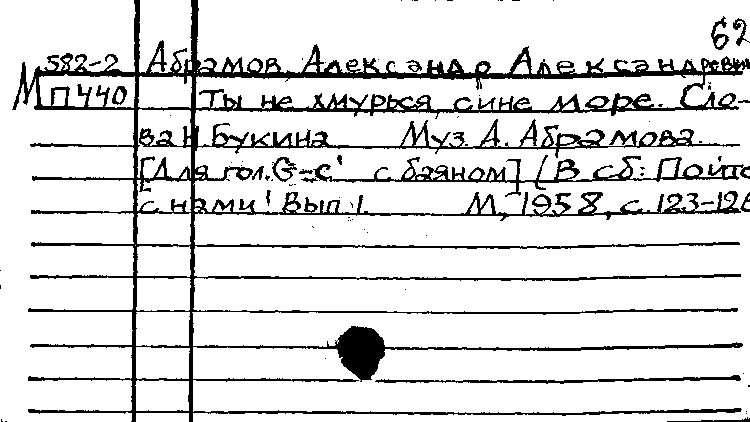 62
582-2 Абрамов, Александр Александрович
М П440 Ты не хмурься, сине море. Сло-
ва Н. Букина Муз. А. Абрамова.
[Для гол. G-c' с баяном] (В сб: Пойте
с нами! Вып 1. М, 1958, с. 123-126